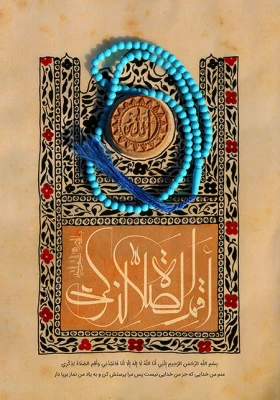 الله
أقم الصلاة لذكري
بِسْمِ اللَّهِ الرَّحْمَنِ الرَّحِيمِ إِنَّنِي أَنَا اللَّهُ لَا إِلَهَ إِلَّا أَنَا فَاعْبُدْنِي وَأَقِمِ الصَّلَاةَ لِذِكْرِي
منم من خدایی که جز من خدایی نیست پس مرا پرستش کن و به یاد من نماز برپا دار